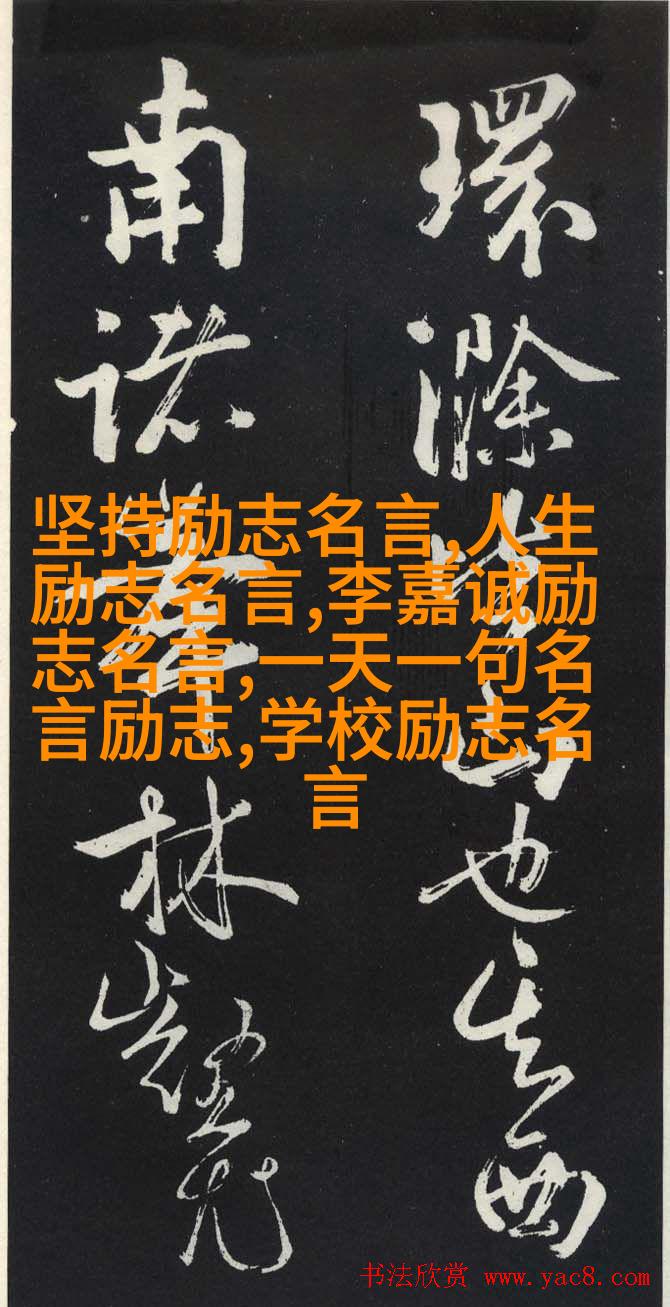 環滁皆山也其西
南諸峯林壑尤
坚持励志名言,人生
励志名言,李嘉诚励
志名言,一天一句名
言励志,学校励志名
言
书法欣赏 www.yac8.com